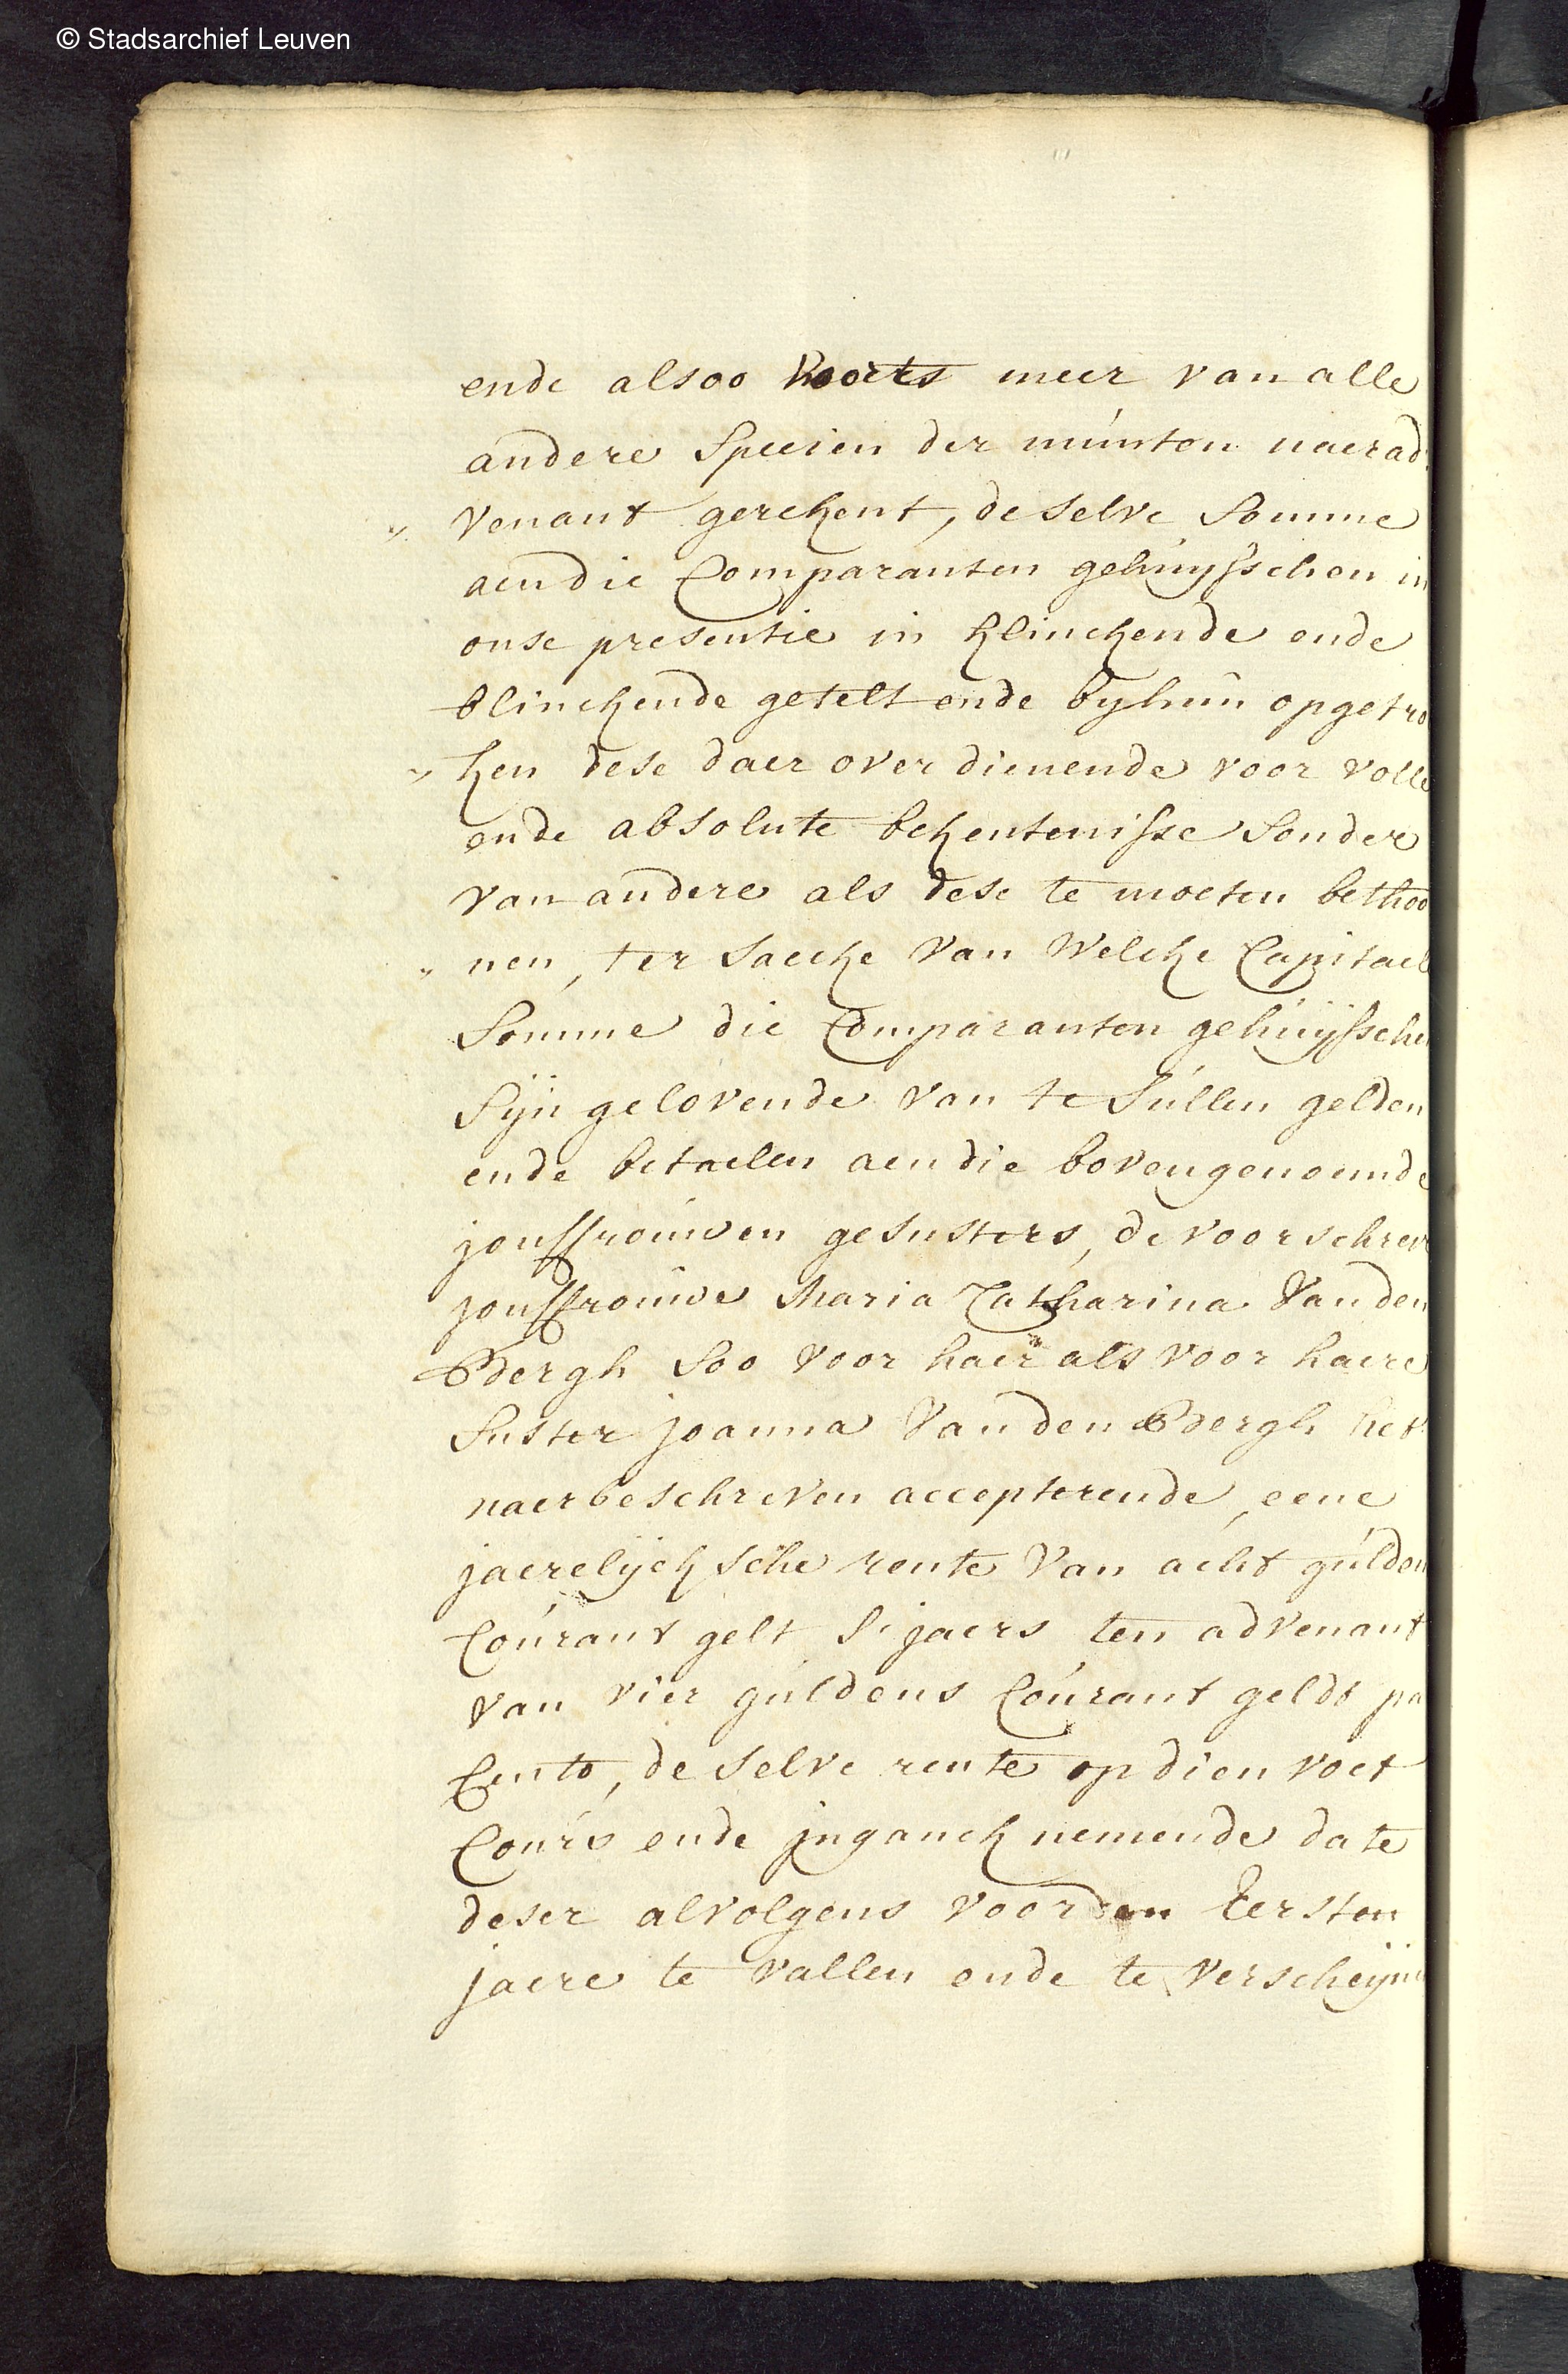 © Stadsarchief Leuven
ende alsoo voorts meer van alle
andere Specien der munten naerad
„ venant gerekent, de selve Somme
aen die Comparanten gehuysschen in
onse presentie in klinckende ende
blinckende getelt ende by hun opgetro
„ ken dese daer over dienende voor volle
ende absolute bekentenisse sonder
van andere als dese te moeten bethoo
„ nen, ter saecke van welcke Capitael
Somme die Comparanten gehuysschen
Sijn gelovende van te sullen gelden
ende betaelen aen die bovengenoemde
jouffrouwen gesusters, de voorschreve
jouffrouwe Maria Catharina Van den
Bergh soo voor haer als voor haere
suster joanna Van den Bergh het
naerbeschreven accepterende, eene
jaerelijcksche rente van acht gulden
Courant gelt s'jaers ten advenant
van vier guldens Courant geldt pa
Cento, de selve rente op dien voet
Cours ende inganck nemende date
deser alvolgens voor den Eersten
jaere te vallen ende te verscheijnen